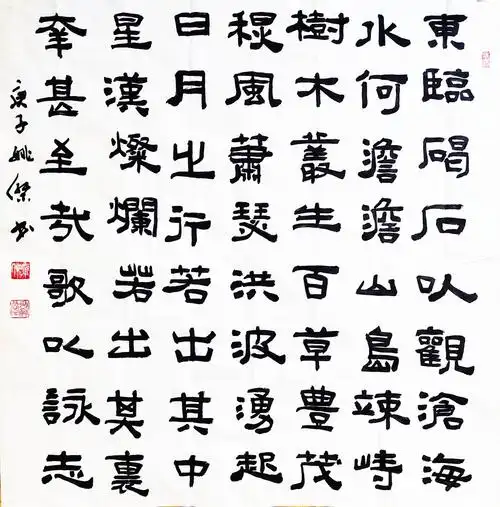 東臨碣石以觀滄海
水何澹澹山島竦峙
樹木叢生百草豐茂
穐風蕭瑟洪波湧起
日月之行若出其中
星漢燦爛若出其裏
幸甚至哉歌以詠志
庚子姚傑書